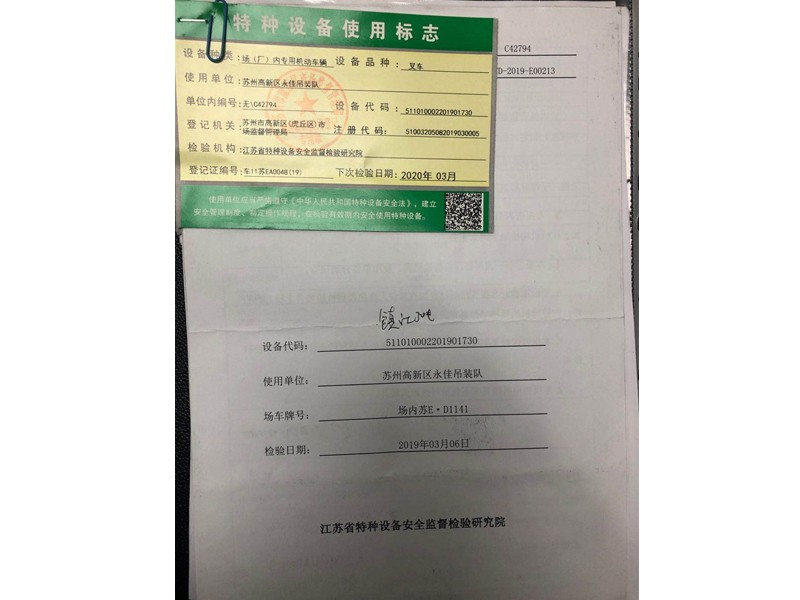 特种设备使用标志
设备种类：场（厂）内专用机动车辆 设备品种：叉车
使用单位：苏州高新区永佳吊装队
单位内编号：无\C42794 设备代码：511010002201901730
登记机关：苏州市高新区(虎丘区)市场监督管理局 注册代码：51003205082019030005
检验机构：江苏省特种设备安全监督检验研究院
登记证编号：车11苏EA0048(19) 下次检验日期：2020年 03月
使用单位应当严格遵守《中华人民共和国特种设备安全法》，建立
安全管理制度，制定操作规程，在检验有效期内安全使用特种设备。
C42794
D-2019-E00213
设备代码：511010002201901730
使用单位：苏州高新区永佳吊装队
场车牌号：场内苏E·D1141
检验日期：2019年03月06日
江苏省特种设备安全监督检验研究院